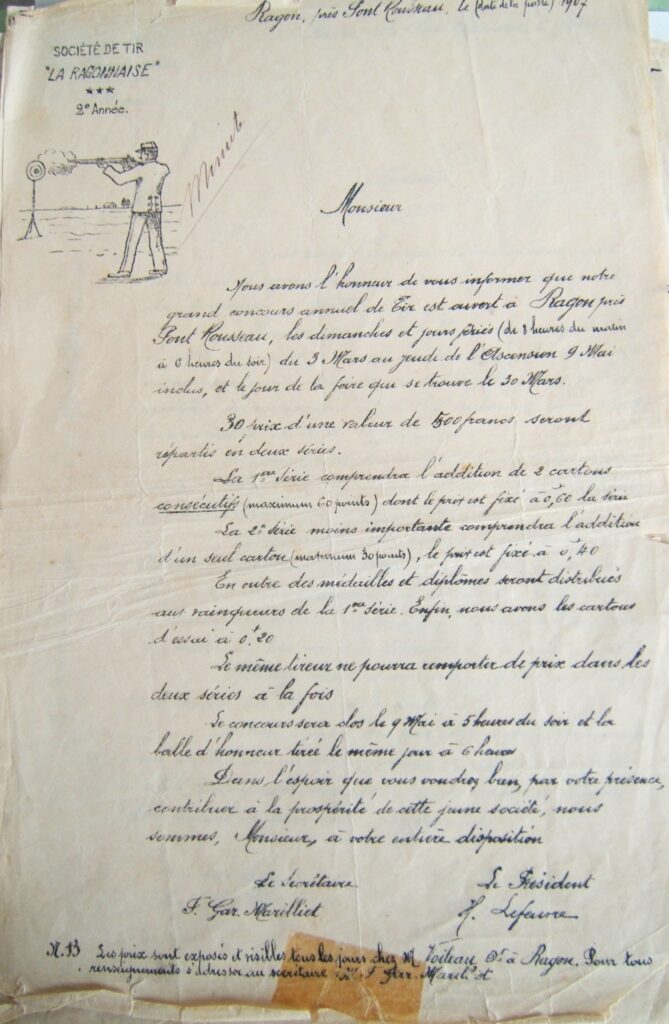 Ragon, près Pont Rousseau, le (date de la poste) 1907
SOCIÉTÉ DE TIR
"LA RAGONNAISE"
★★★
2e Année.
Minute
Monsieur
Nous avons l'honneur de vous informer que notre
grand concours annuel de Tir est ouvert à Ragon près
Pont Rousseau, les dimanches et jours fériés (de 8 heures du matin
à 6 heures du soir) du 3 Mars au jeudi de l'Ascension 9 Mai
inclus, et le jour de la foire qui se trouve le 30 Mars.
30 prix d'une valeur de 500 francs seront
répartis en deux séries.
La 1ère Série comprendra l'addition de 2 cartons
consécutifs (maximum 60 points) dont le prix est fixé à 0f,60 la série
La 2e Série moins importante comprendra l'addition
d'un seul carton (maximum 30 points), le prix est fixé à 0f,40
En outre des médailles et diplômes seront distribués
aux vainqueurs de la 1ère Série. Enfin, nous avons les cartons
d'essai à 0f,20
Le même tireur ne pourra remporter de prix dans les
deux séries à la fois
Le concours sera clos le 9 Mai à 5 heures du soir et la
balle d'honneur tirée le même jour à 6 heures
Dans l'espoir que vous voudrez bien, par votre présence,
contribuer à la prospérité de cette jeune société, nous
sommes, Monsieur, à votre entière disposition
Le Secrétaire
Le Président
F. Gar. Marilliet
H. Lefeuvre
N.B Les prix sont exposés et visibles tous les jours chez M. à Ragon. Pour tous
renseignements s'adresser au secrétaire